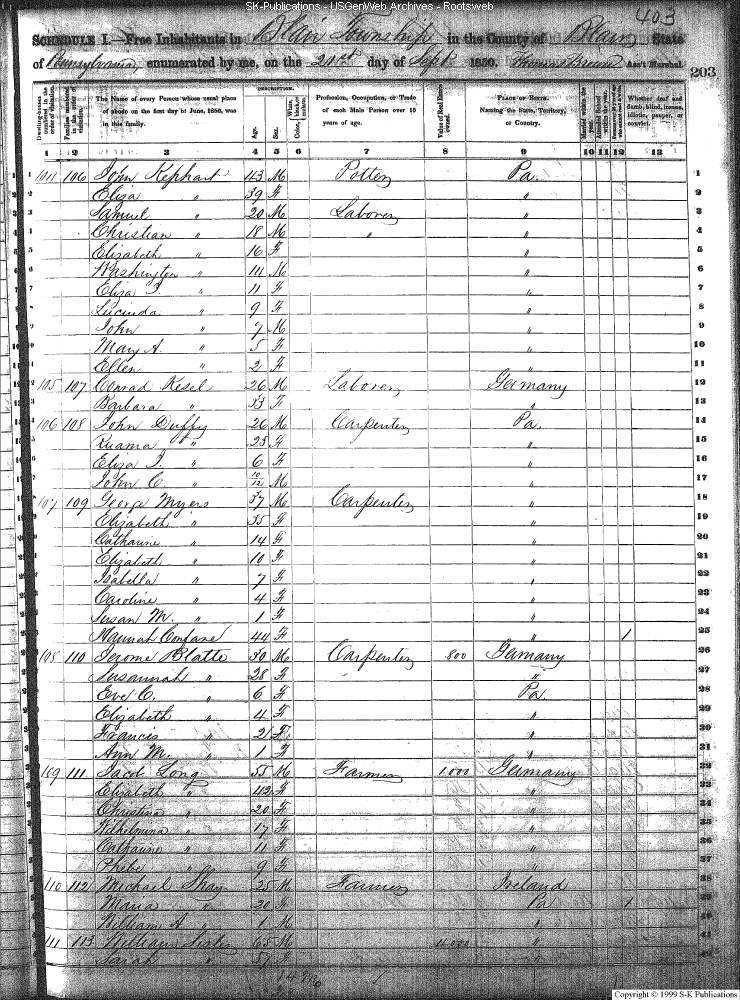 SK-Publications - USGenWeb Archives - Rootsweb
403
SCHEDULE I.—Free Inhabitants in Blair Township in the County of Blair State
of Pennsylvania enumerated by me, on the 21st day of Sept 1850. Thomas Ass't Marshal.
203
Dwelling-houses numbered in the order of visitation.
Families numbered in the order of visitation.
The Name of every Person whose usual place of abode on the first day of June, 1850, was in this family.
DESCRIPTION.
Age.
Sex.
White, black, or mulatto.
Color
Profession, Occupation, or Trade of each Male Person over 15 years of age.
Value of Real Estate owned.
PLACE OF BIRTH. Naming the State, Territory, or Country.
Married within the year.
Whether deaf and dumb, blind, insane, idiotic, pauper, or convict.
1 2 3 4 5 6 7 8 9 10 11 12 13
1 106 John Kephart 43 M Potter Pa. 1
2 Eliza " 39 F " 2
3 Samuel " 20 M Laborer " 3
4 Christian " 18 M " " 4
5 Elizabeth " 16 F " 5
6 Washington " 14 M " 6
7 Eliza J. " 11 F " 7
8 Lucinda " 9 F " 8
9 John " 7 M " 9
10 Mary A. " 5 F " 10
11 Ellen " 2 F " 11
12 105 107 Conrad Kesel 26 M Laborer Germany 12
13 Barbara " 33 F " 13
14 106 108 John Duffy 26 M Carpenter Pa. 14
15 " 23 F " 15
16 Eliza J. " 6 F " 16
17 John C. " 10/12 M " 17
18 107 109 George Myers 37 M Carpenter " 18
19 Elizabeth " 35 F " 19
20 Catharine " 14 F " 20
21 Elizabeth " 10 F " 21
22 Isabella " 7 F " 22
23 Caroline " 4 F " 23
24 Susan M. " 1 F " 24
25 Hannah 44 F " 1 25
26 108 110 Jerome Blatte 30 M Carpenter 800 Germany 26
27 Susannah " 28 F " 27
28 Eve C. " 6 F Pa. 28
29 Elizabeth " 4 F " 29
30 Francis " 2 F " 30
31 Ann M. " 1 F " 31
32 109 111 Jacob Long 55 M Farmer 1,000 Germany 32
33 Elizabeth " 42 F " 33
34 Christina " 20 F " 34
35 Wilhelmina " 17 F " 35
36 Catharine " 11 F " 36
37 Phebe " 9 F " 37
38 110 112 Michael Shay 25 M Farmer Ireland 38
39 Maria " 20 F Pa 1 39
40 William A " 1 M " 40
41 111 113 William 65 M " 41
42 Sarah " 57 F " 42
Copyright © 1999 S-K Publications